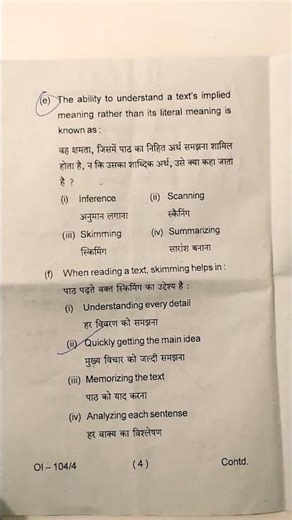 (e) The ability to understand a text's implied
meaning rather than its literal meaning is
known as :
वह क्षमता, जिसमें पाठ का निहित अर्थ समझना शामिल
होता है, न कि उसका शाब्दिक अर्थ, उसे क्या कहा जाता
है ?
(i) Inference (ii) Scanning
अनुमान लगाना स्कैनिंग
(iii) Skimming (iv) Summarizing
स्किमिंग सारांश बनाना
(f) When reading a text, skimming helps in :
पाठ पढ़ते वक्त स्किमिंग का उद्देश्य है :
(i) Understanding every detail
हर विवरण को समझना
(ii) Quickly getting the main idea
मुख्य विचार को जल्दी समझना
(iii) Memorizing the text
पाठ को याद करना
(iv) Analyzing each sentence
हर वाक्य का विश्लेषण
OI – 104/4 ( 4 ) Contd.